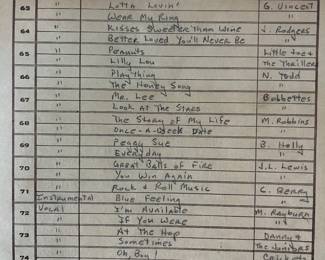 63 " Lotta Lovin' G. Vincent
" Wear My Ring "
64 " Kisses Sweeter Than Wine J. Rodgers
" Better Loved You'll Never Be "
65 " Peanuts Little Joe &
" Lilly Lou the Thriller
66 " Plaything N. Todd
" The Honey Song "
67 " Mr. Lee Bobbettes
" Look At The Stars "
68 " The Story of My Life M. Robbins
" Once-A-Week Date "
69 " Peggy Sue B. Holly
" Everyday "
70 " Great Balls of Fire J.L. Lewis
" You Win Again "
71 " Rock & Roll Music C. Berry
Instrumental Blue Feeling "
72 Vocal I'm Available M. Rayburn
" If You Were "
73 " At The Hop Danny &
" Sometimes the Juniors
74 " Oh, Boy!